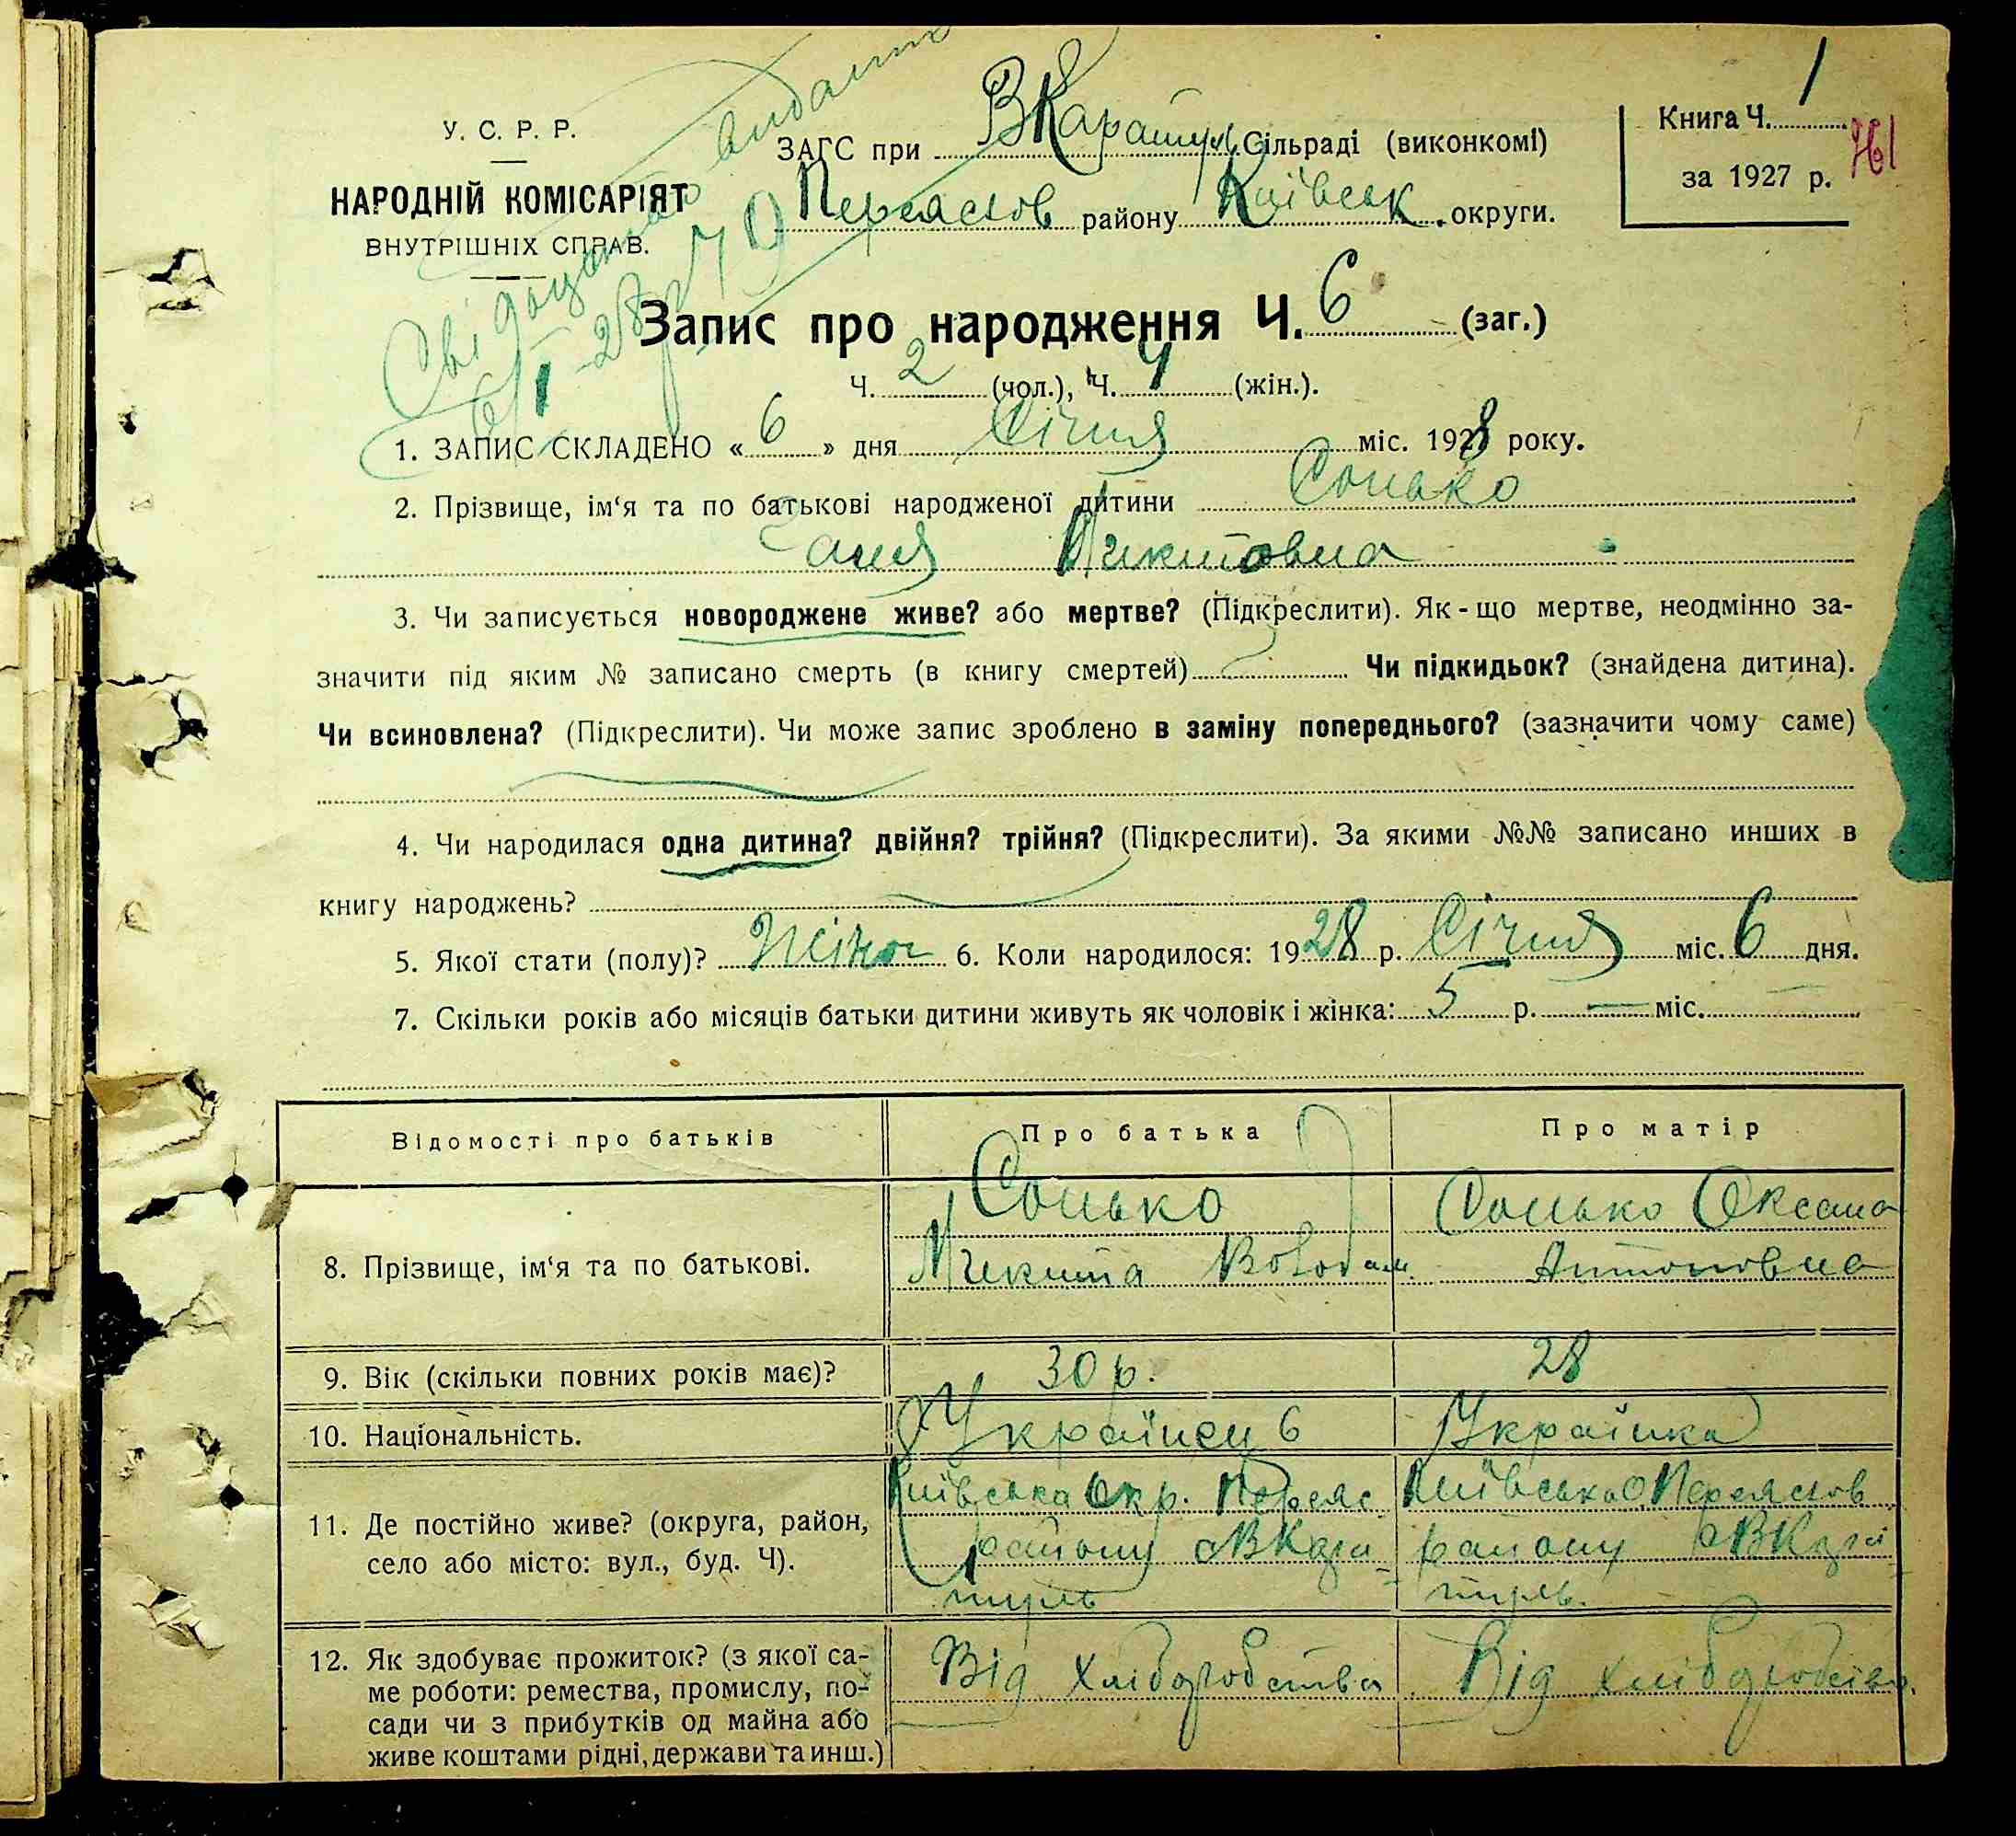 Свідоцтво видано
6/I-28р. 70
У. С. Р. Р.
НАРОДНІЙ КОМІСАРІЯТ
ВНУТРІШНІХ СПРАВ.
ЗАГС при ВКаратул. Сільраді (виконкомі)
Переяслов району Київськ. округи.
Книга Ч. 1
за 1927 р.
Запис про народження Ч. 6 (заг.)
Ч. 2 (чол.), Ч. 4 (жін.).
1. ЗАПИС СКЛАДЕНО « 6 » дня Січня міс. 1928 року.
2. Прізвище, ім‘я та по батькові народженої дитини Сонько
Ганя Микитовна
3. Чи записується новороджене живе? або мертве? (Підкреслити). Як-що мертве, неодмінно за-
значити під яким № записано смерть (в книгу смертей) Чи підкидьок? (знайдена дитина).
Чи всиновлена? (Підкреслити). Чи може запис зроблено в заміну попереднього? (зазначити чому саме)
4. Чи народилася одна дитина? двійня? трійня? (Підкреслити). За якими №№ записано инших в
книгу народжень?
5. Якої стати (полу)? Жіноч 6. Коли народилося: 1928 р. Січня міс. 6 дня.
7. Скільки років або місяців батьки дитини живуть як чоловік і жінка: 5 р. — міс.
Відомості про батьків Про батька Про матір
8. Прізвище, ім‘я та по батькові.
Сонько
Микита Володим.
Сонько Оксана
Антоновна
9. Вік (скільки повних років має)? 30 р. 28
10. Національність. Українець Українка
11. Де постійно живе? (округа, район,
село або місто: вул., буд. Ч).
Київська Окр. Переяс
району сВКара-
туль
Київська О. Переяслов
району сВКара
туль.
12. Як здобуває прожиток? (з якої са-
ме роботи: ремества, промислу, по-
сади чи з прибутків од майна або
живе коштами рідні, держави та инш.)
Від хліборобства
Від хліборобства.